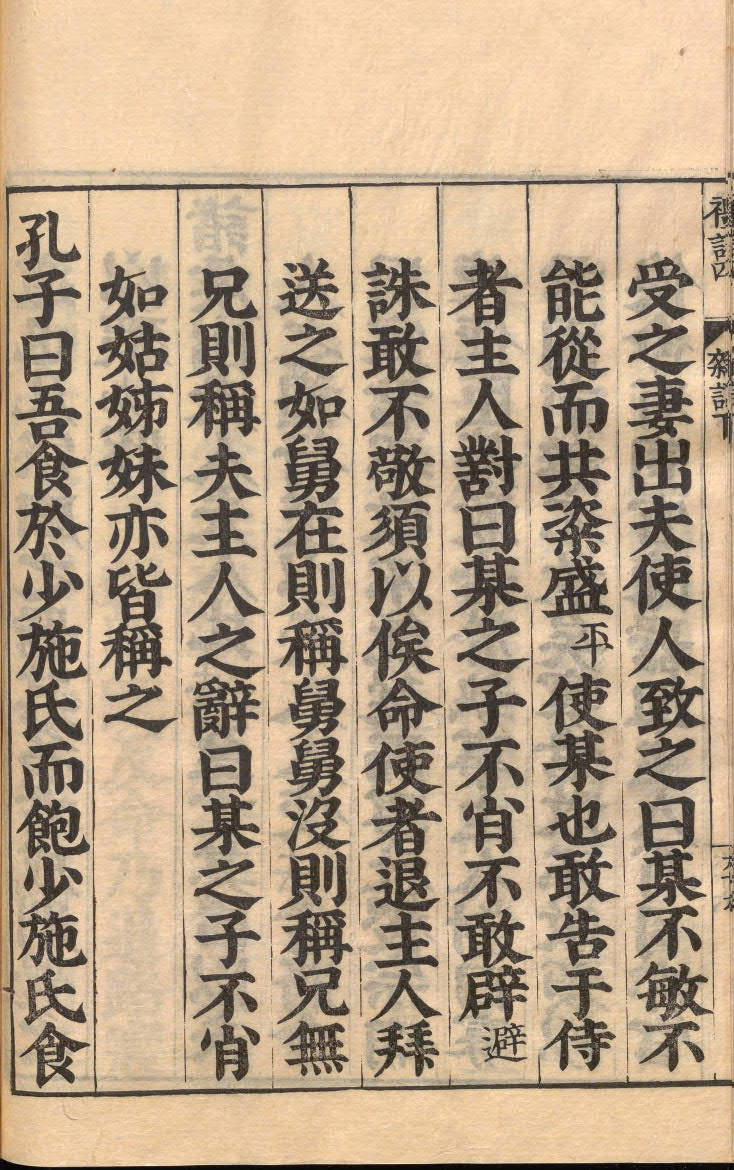 受之妻出夫使人致之曰某不敏不
能從而共粢盛平使某也敢告于侍
者主人對曰某之子不肖不敢辟避
誅敢不敬須以俟命使者退主人拜
送之如舅在則稱舅舅沒則稱兄無
兄則稱夫主人之辭曰某之子不肖
如姑姊妹亦皆稱之
孔子曰吾食於少施氏而飽少施氏食